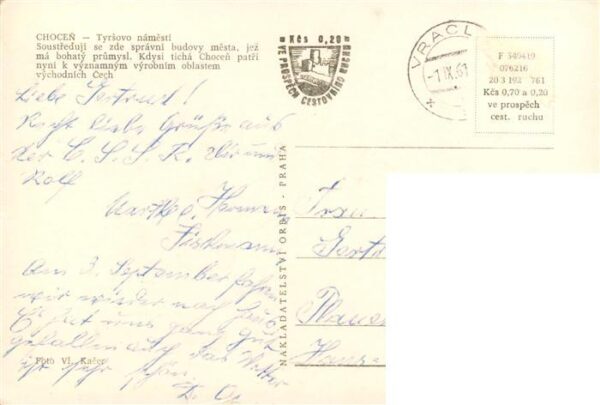 CHOCEŇ — Tyršovo náměstí
Soustřeďují se zde správní budovy města, jež
má bohatý průmysl. Kdysi tichá Choceň patří
nyní k významným výrobním oblastem
východních Čech
Kčs 0,20
VE PROSPĚCH CESTOVNÍHO RUCHU
VRACL
-1.IX.61
F 549419
076216
20 3 192 761
Kčs 0,70 a 0,20
ve prospěch
cest. ruchu
Liebe Gertrud!
Recht liebe Grüße aus
der C. S. S. R.
Rolf
Am 3. September fahren
wir wieder nach Haus
Es hat uns ganz gut
gefallen auch das Wetter
ist sehr schön.
Foto Vl. Kačer
NAKLADATELSTVÍ ORBIS - PRAHA
Frau
Gertr
Plauen
Hans-